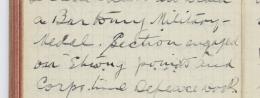 a Bar to my Military
Medal. Section engaged
on strong points and
Corps. line Defence work